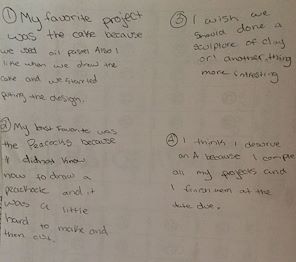 ① My favorite project
was the cake because
we used oil pastel Also I
like when we draw the
cake and we started
puting the design.
② My best Favorite was
the Peacocks because
I didnot know
how to draw a
peachock and it
was a little
hard to make and
then cut.
③ I wish we
should done a
sculpture of clay
or another thing
more intresting
④ I think I deserve
an A because I comple
all my projects and
I finish them at the
date due.